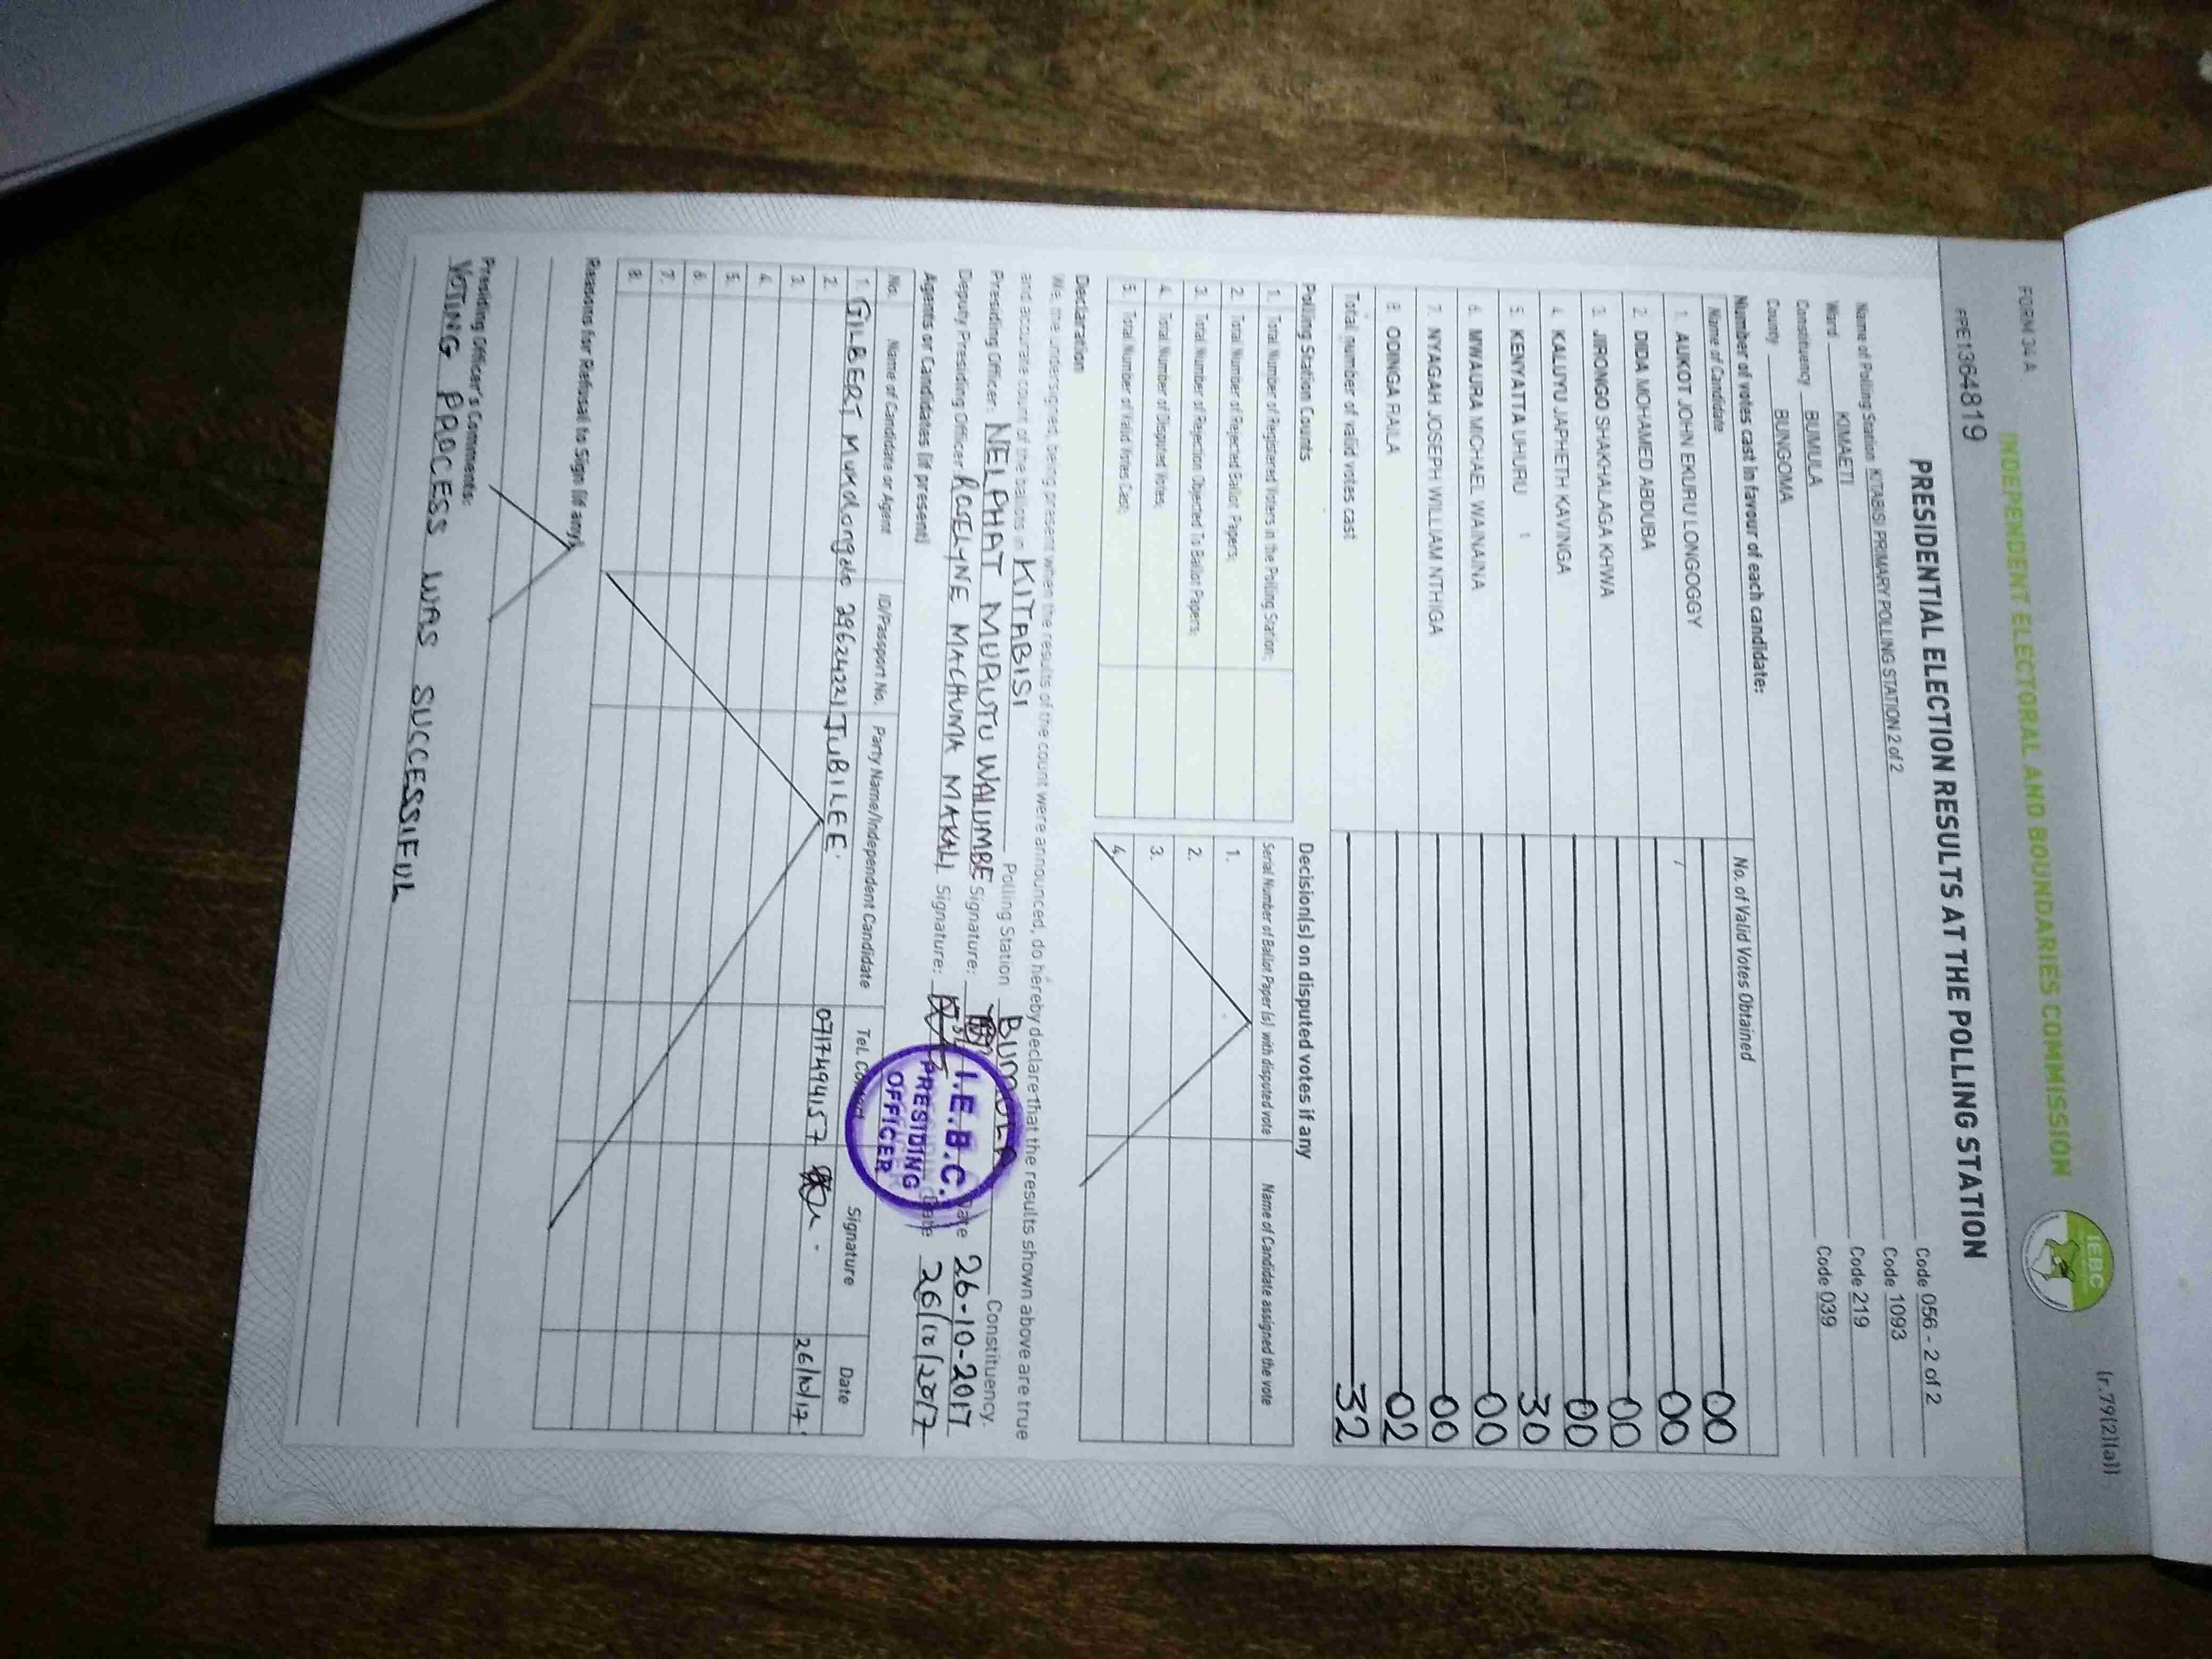 FORM 34 A
(r.79(2)(a))
INDEPENDENT ELECTORAL AND BOUNDARIES COMMISSION
IEBC
PRE1364819
PRESIDENTIAL ELECTION RESULTS AT THE POLLING STATION
Name of Polling Station KITABISI PRIMARY POLLING STATION 2 of 2 Code 056 - 2 of 2
Ward KIMAETI Code 1093
Constituency BUMULA Code 2119
County BUNGOMA Code 039
Number of votes cast in favour of each candidate:
Name of Candidate No. of Valid Votes Obtained
1. AUKOT JOHN EKURU LONGOGGY 00
2. DIDA MOHAMED ABDUBA 00
3. JIRONGO SHAKHALAGA KHWA 00
4. KALUYU JAPHETH KAVINGA 00
5. KENYATTA UHURU 30
6. MWAURA MICHAEL WAINAINA 00
7. NYAGAH JOSEPH WILLIAM NTHIGA 00
8. ODINGA RAILA 02
Total number of valid votes cast 32
Polling Station Counts Decision(s) on disputed votes if any
1. Total Number of Registered Voters in the Polling Station; Serial Number of Ballot Paper (s) with disputed vote Name of Candidate assigned the vote
2. Total Number of Rejected Ballot Papers; 1.
3. Total Number of Rejection Objected To Ballot Papers; 2.
4. Total Number of Disputed Votes; 3.
5. Total Number of Valid Votes Cast; 4.
Declaration
We, the undersigned, being present when the results of the count were announced, do hereby declare that the results shown above are true
and accurate count of the ballots in KITABISI Polling Station BUMULA Constituency.
Presiding Officer: NELPHAT MURUTU WALUMBE Signature: Date 26-10-2017
Deputy Presiding Officer: ROSELYNE MACHUMA MAKALI Signature: Date 26/10/2017
I.E.B.C.
PRESIDING
OFFICER
Agents or Candidates (if present)
No. Name of Candidate or Agent ID/Passport No. Party Name/Independent Candidate Tel. Contact Signature Date
1. GILBERT Mukolongolo 29624221 JUBILEE. 0717494157 26/10/17.
2.
3.
4.
5.
6.
7.
8.
Reasons for Refusal to Sign (if any)
Presiding Officer's Comments:
VOTING PROCESS WAS SUCCESSIFUL